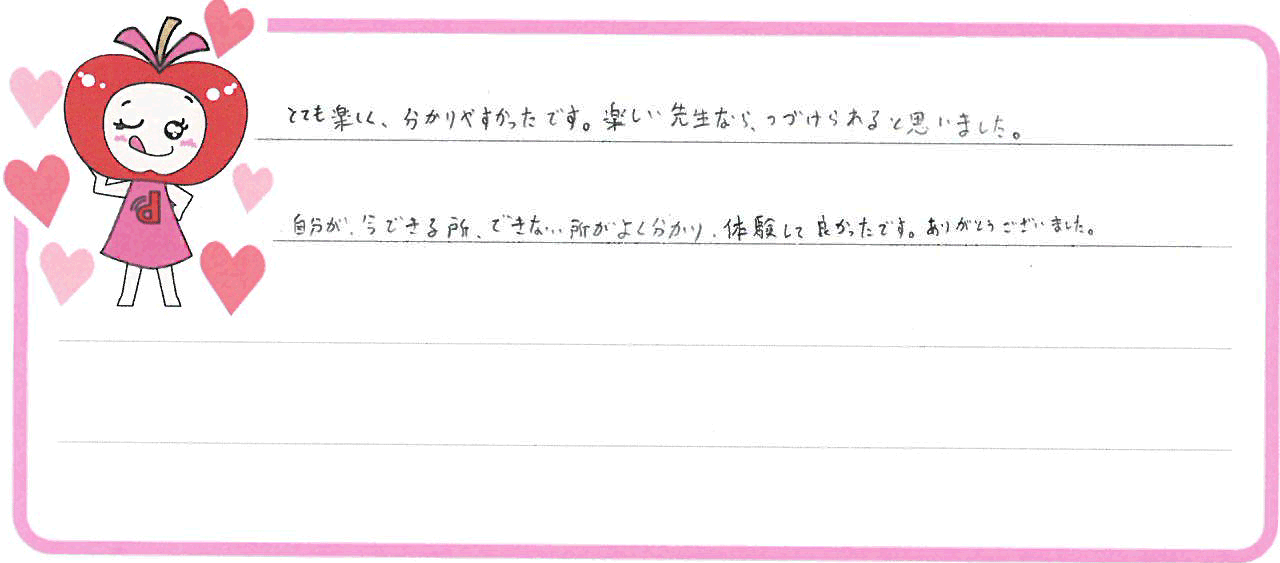 とても楽しく、分かりやすかったです。楽しい先生なら、つづけられると思いました。
自分が、今できる所、できない所がよく分かり、体験して良かったです。ありがとうございました。